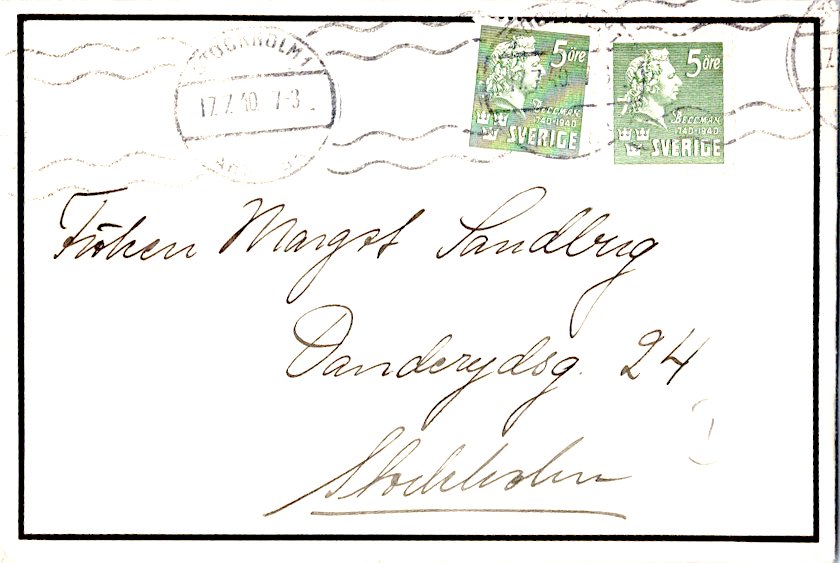 STOCKHOLM 1
17.7.40 7-3
5 öre
BELLMAN
1740-1940
SVERIGE
5 öre
BELLMAN
1740-1940
SVERIGE
Fröken Margit Sandberg
Danderydsg. 24
Stockholm